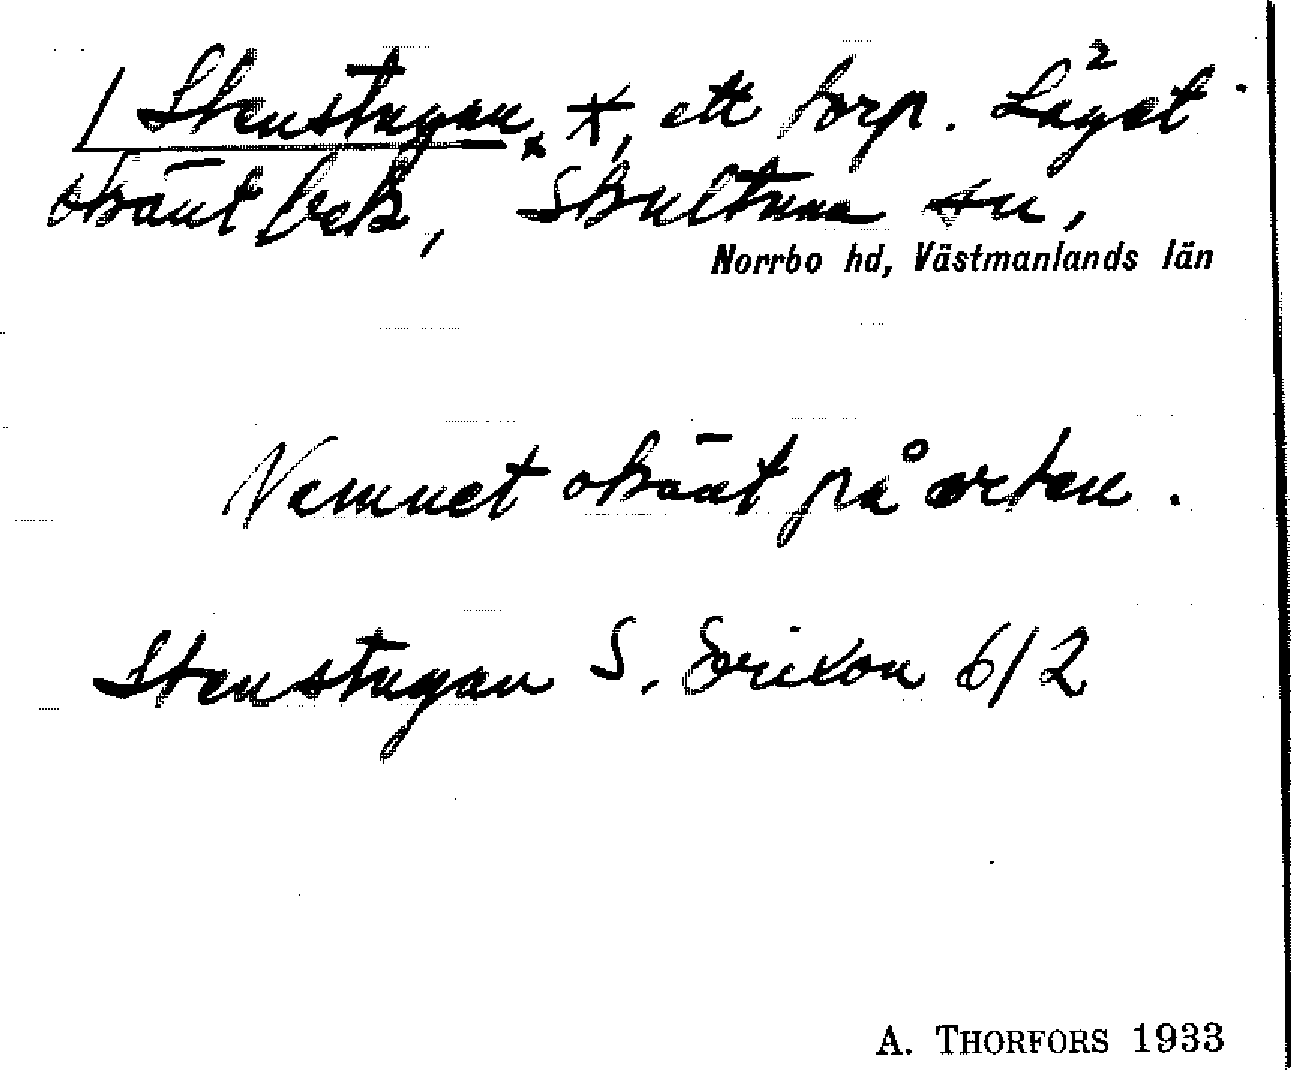 Stenstugan × ⚹, ett torp. Läget 2
okänt bek, Skultuna sn,
Norrbo hd, Västmanlands län
Namnet okänt på orten.
Stenstugan S. Erixon 6/2
A. THORFORS 1933